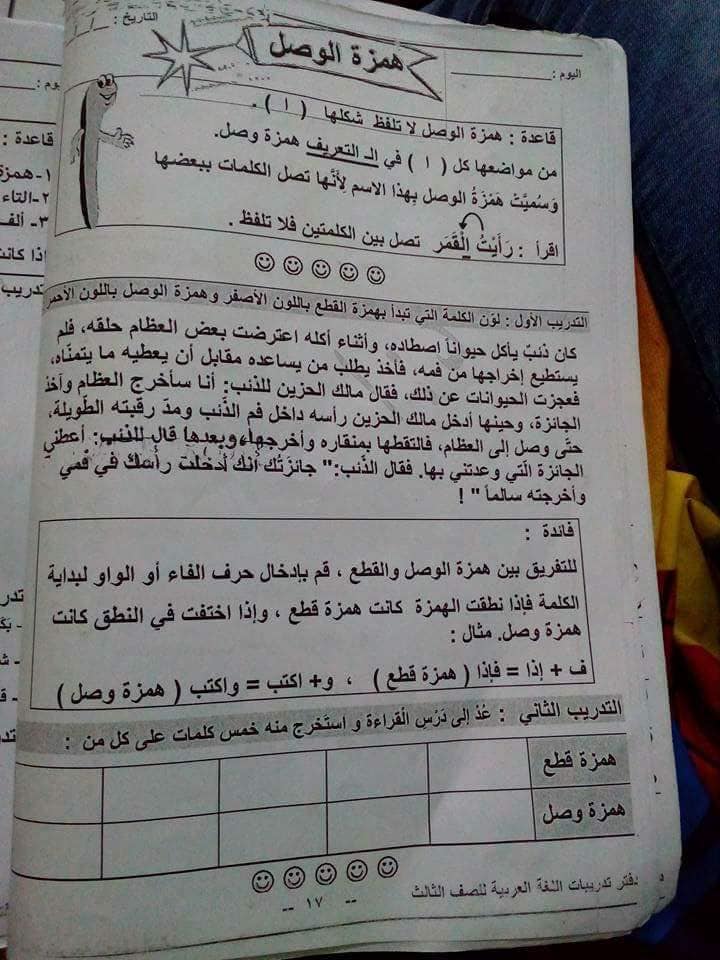 التاريخ : / /
اليوم :
همزة الوصل
قاعدة : همزة الوصل لا تلفظ شكلها ( ا ) .
من مواضعها كل ( ا ) في الـ التعريف همزة وصل.
وَسُميَّتْ هَمْزَةُ الوصل بهذا الاسم لِأَنَّها تصل الكلمات ببعضها
اقرأ : رَأَيْتُ الْقَمَر تصل بين الكلمتين فلا تلفظ .
التدريب الأول : لوّن الكلمة التي تبدأ بهمزة القطع باللون الأصفر وهمزة الوصل باللون الأحمر
كان ذئبٌ يأكل حيواناً اصطاده، وأثناء أكله اعترضت بعض العظام حلقه، فلم
يستطيع إخراجها من فمه، فأخذ يطلب من يساعده مقابل أن يعطيه ما يتمنّاه،
فعجزت الحيوانات عن ذلك، فقال مالك الحزين للذئب: أنا سأخرج العظام وآخذ
الجائزة، وحينها أدخل مالك الحزين رأسه داخل فم الذّئب ومدّ رقبته الطّويلة،
حتّى وصل إلى العظام، فالتقطها بمنقاره وأخرجها، وبعدها قال للذئب: أعطني
الجائزة الّتي وعدتني بها. فقال الذّئب:" جائزتك أنك أدخلت رأسك في فمي
وأخرجته سالماً " !
فائدة :
للتفريق بين همزة الوصل والقطع ، قم بإدخال حرف الفاء أو الواو لبداية
الكلمة فإذا نطقت الهمزة كانت همزة قطع ، وإذا اختفت في النطق كانت
همزة وصل. مثال :
ف + إذا = فإذا ( همزة قطع ) ، و+ اكتب = واكتب ( همزة وصل )
التدريب الثاني : عُدْ إلى دَرْسِ الْقراءة و استخرج منه خمس كلمات على كل من :
همزة قطع
همزة وصل
دفتر تدريبات اللغة العربية للصف الثالث
-- ١٧ --
يوم :
قاعدة
١- همزة
٢- التاء
٣- ألف
إذا كانت